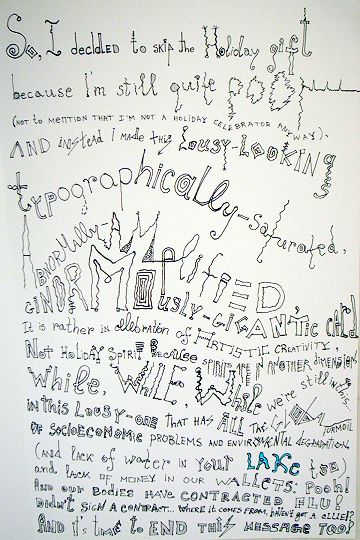 So, I decided to skip the Holiday gift
because I'm still quite poor
(NOT TO MENTION THAT I'M NOT A HOLIDAY CELEBRATOR ANYWAY).
AND instead I made this LOUSY-LOOKING
typographically-saturated,
ABNORMALLY AMPLIFIED,
GINORMOUSLY-GIGANTIC CARD
It is rather in celebration of ARTISTIC CREATIVITY,
NOT HOLIDAY SPIRIT BECAUSE SPIRITS ARE IN ANOTHER DIMENSION
While, WHILE, While we're still in this,
IN THIS LOUSY-ONE THAT HAS ALL THE TURMOIL
OF SOCIOECONOMIC PROBLEMS AND ENVIRONMENTAL DEGRADATION,
(AND lack of WATER IN YOUR LAKE too)
and LACK OF MONEY IN OUR WALLETS; POOH!
AND OUR BODIES HAVE CONTRACTED FLU!
DIDN'T SIGN A CONTRACT... WHERE IT COMES FROM, HAVEN'T GOT A CLUE!?
AND it's time to END THIS MESSAGE TOO!